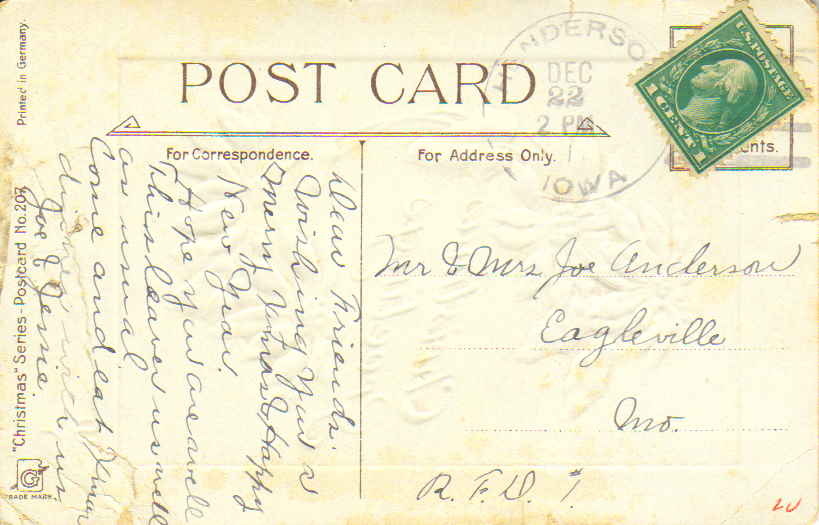 Printed in Germany.
"Christmas" Series - Postcard No. 207.
TRADE MARK
POST CARD
For Correspondence.
For Address Only.
HENDERSO
DEC
22
2 PM
IOWA
U.S. POSTAGE
1 CENT 1
ents.
Dear Friends.
Wishing you a
Merry Xmas & Happy
New Year.
Hope you are well
This leaves us well
as usual.
Come and eat Xmas
dinner with us
Joe & Jessie.
Mr & Mrs Joe Anderson
Eagleville
Mo.
R. F. D. # 1.